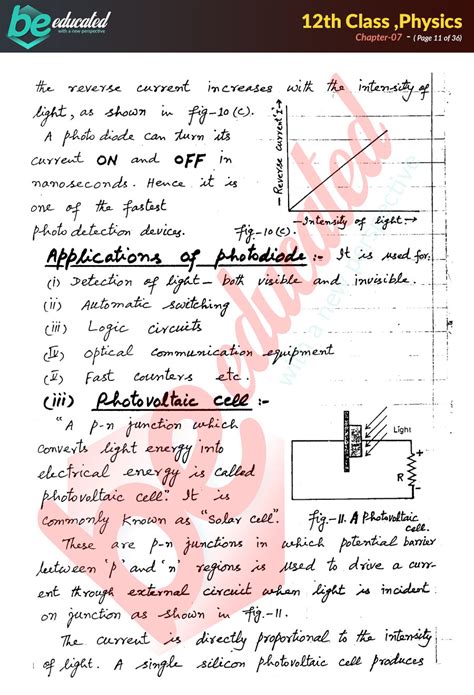 be educated
with a new perspective
12th Class ,Physics
Chapter-07 - ( Page 11 of 36)
the reverse current increases with the intensity of
light, as shown in fig-10 (c).
A photo diode can turn its
current ON and OFF in
nanoseconds. Hence it is
one of the fastest
photo detection devices.
Reverse current I→
—Intensity of light→
Fig-10(c).
Applications of photodiode:- It is used for:
(i) Detection of light – both visible and invisible.
(ii) Automatic switching
(iii) Logic circuits
(iv) Optical communication equipment
(v) Fast counters etc.
(iii) Photovoltaic cell :-
"A p-n junction which
converts light energy into
electrical energy is called
photovoltaic cell." It is
commonly known as "Solar cell".
Light
+
R
-
Fig.-11. A Photovoltaic
cell.
These are p-n junctions in which potential barrier
between 'p' and 'n' regions is used to drive a curr-
ent through external circuit when light is incident
on junction as shown in fig-11.
The current is directly proportional to the intensity
of light. A single silicon photovoltaic cell produces
be educated
with a new perspective